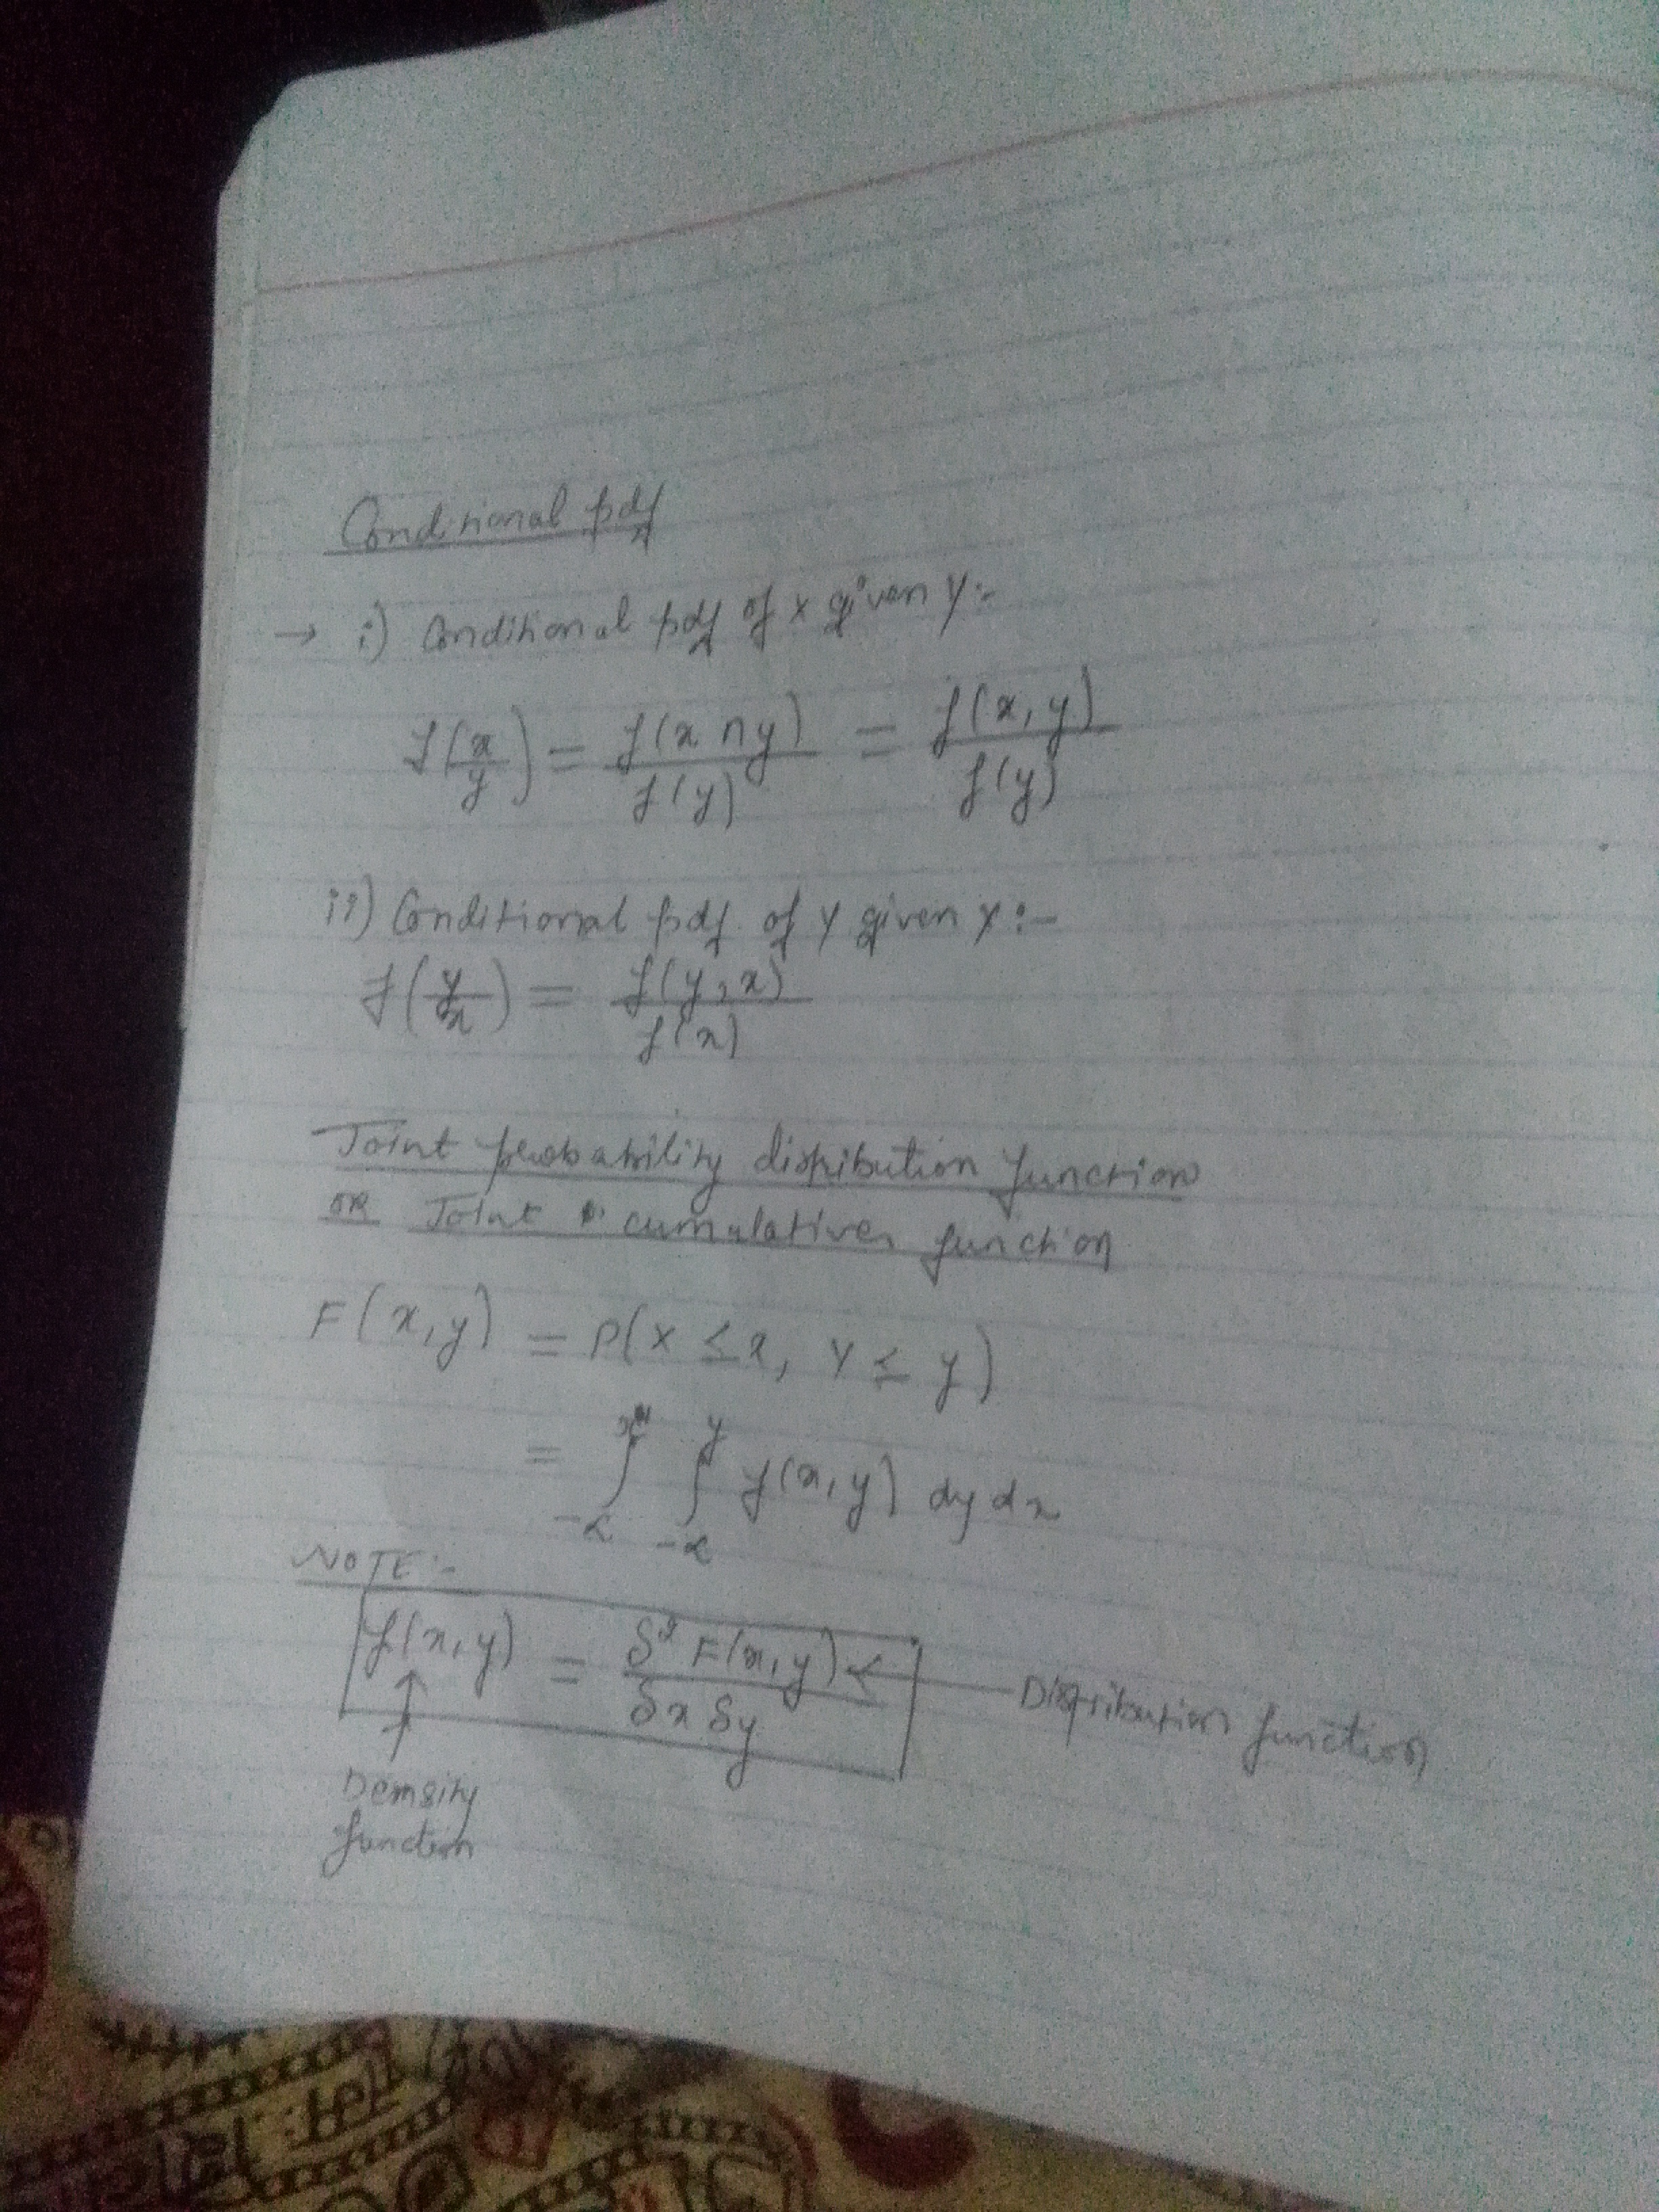 Conditional pdf
→ i) Conditional pdf of x given y:-
f(x/y) = f(x ∩ y)/f(y) = f(x, y)/f(y)
ii) Conditional pdf of y given x:-
f(y/x) = f(y, x)/f(x)
Joint probability distribution function
OR Joint cumulative function
F(x, y) = P(X ≤ x, Y ≤ y)
= ∫_{-∞}^{x} ∫_{-∞}^{y} f(x, y) dy dx
NOTE:-
f(x, y) = δ² F(x, y)/δx δy ← Distribution function
↑
Density
function